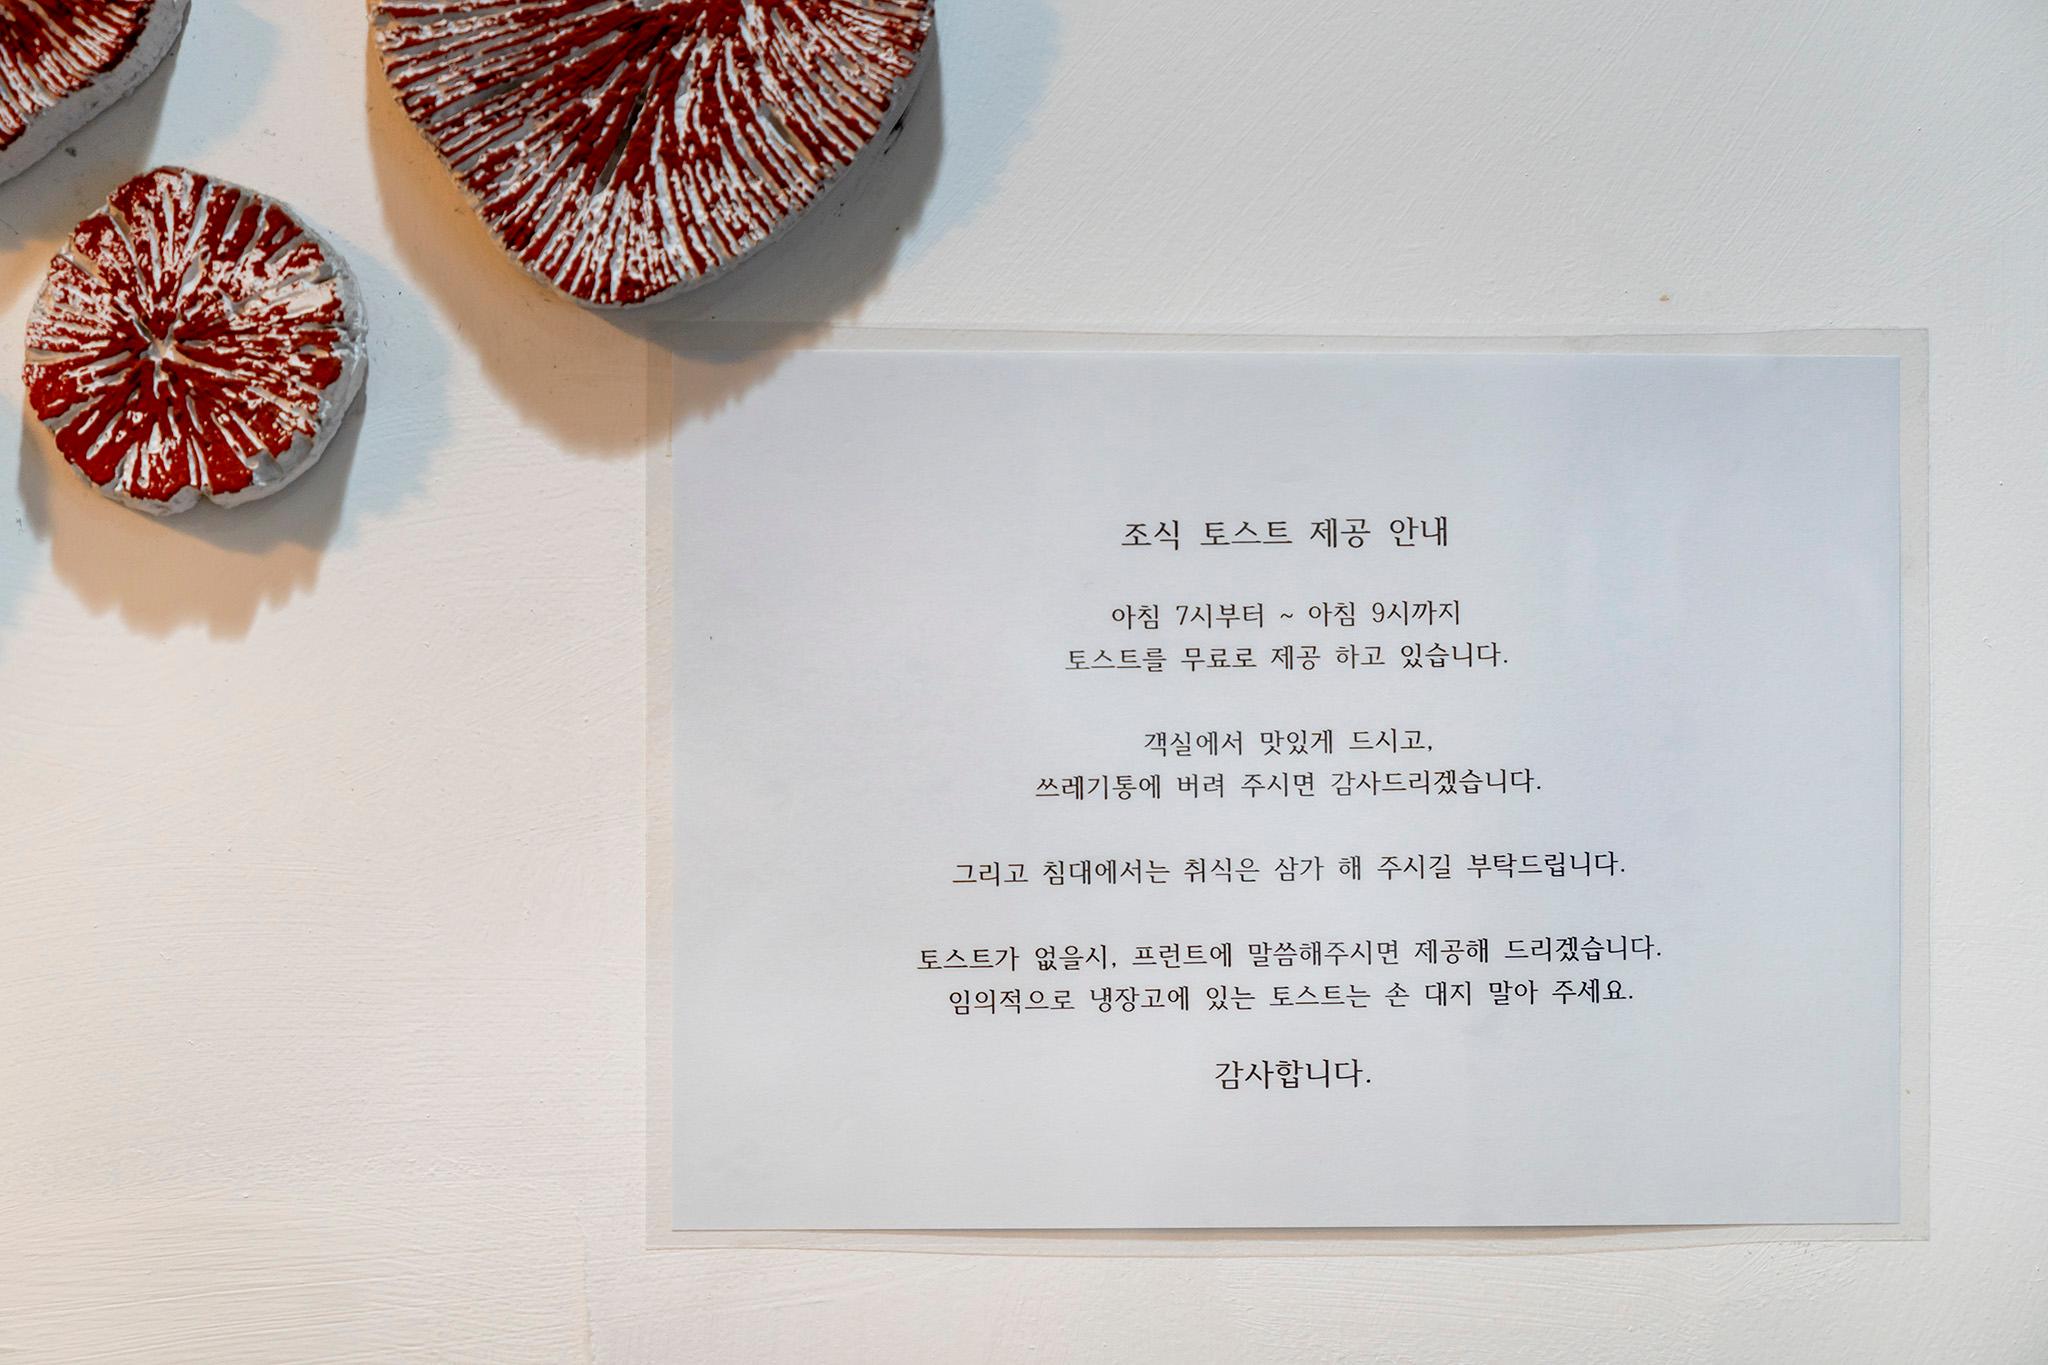 조식 토스트 제공 안내
아침 7시부터 ~ 아침 9시까지
토스트를 무료로 제공 하고 있습니다.
객실에서 맛있게 드시고,
쓰레기통에 버려 주시면 감사드리겠습니다.
그리고 침대에서는 취식은 삼가 해 주시길 부탁드립니다.
토스트가 없을시, 프런트에 말씀해주시면 제공해 드리겠습니다.
임의적으로 냉장고에 있는 토스트는 손 대지 말아 주세요.
감사합니다.